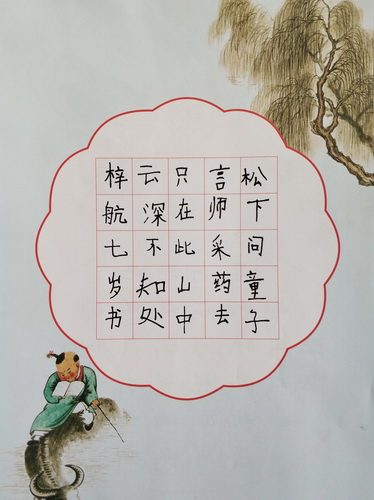 松下问童子
言师采药去
只在此山中
云深不知处
梓航七岁书